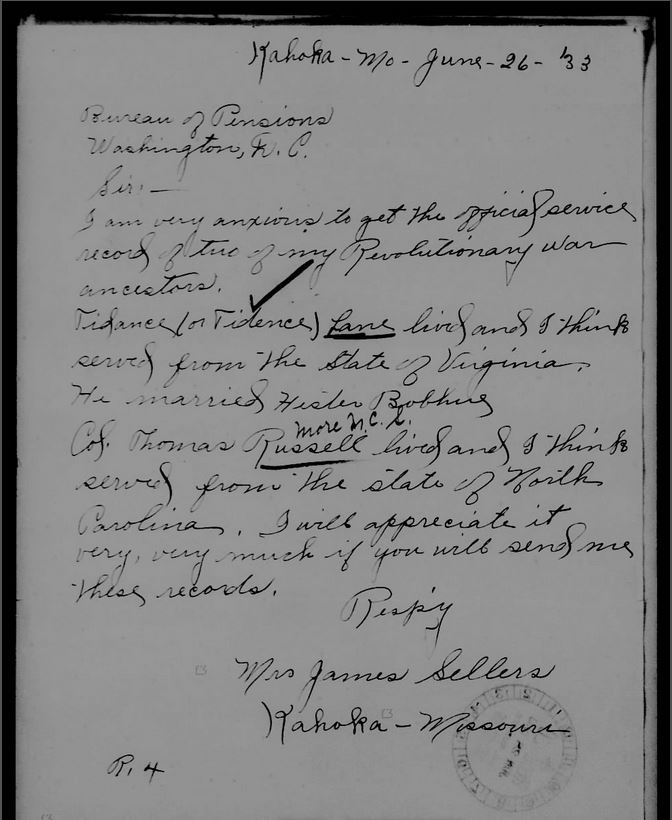 Kahoka - Mo - June - 26 - '33
Bureau of Pensions
Washington, D. C.
Sir: —
I am very anxious to get the official service
record of two of my Revolutionary war
ancestors.
Tidance (or Tidence) Lane lived and I think
served from the State of Virginia.
He married Hester Bibbie
more N.C.
Col. Thomas Russell lived and I think
served from the state of North
Carolina. I will appreciate it
very, very much if you will send me
these records.
Resp'y
Mrs James Sellers
Kahoka - Missouri
R. 4